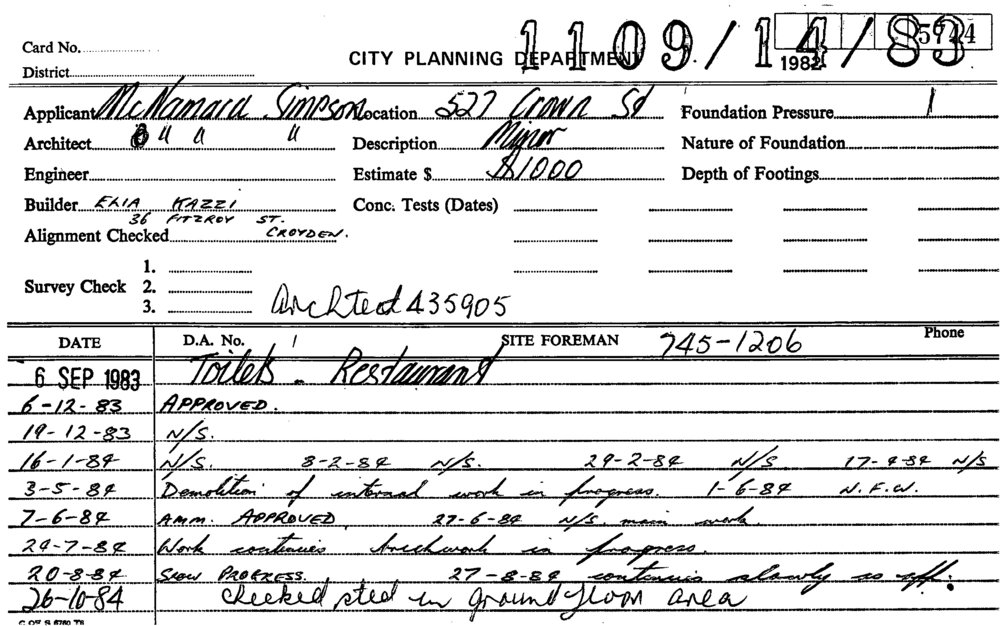 1109/14/83
5744
1982
Card No.
CITY PLANNING DEPARTMENT
District
Applicant McNamara Simpson Location 527 Crown St Foundation Pressure
Architect " " " Description Minor Nature of Foundation
Engineer Estimate $ $1000 Depth of Footings
Builder ELIA KAZZI Conc. Tests (Dates)
36 FITZROY ST.
Alignment Checked CROYDEN.
1.
Survey Check 2.
3. Architect 435905
DATE D.A. No. SITE FOREMAN 745-1206 Phone
6 SEP 1983 Toilets - Restaurant
6-12-83 APPROVED.
19-12-83 N/S.
16-1-84 N/S. 8-2-84 N/S. 29-2-84 N/S 17-4-84 N/S
3-5-84 Demolition of internal work in progress. 1-6-84 N.F.W.
7-6-84 AMM. APPROVED 27-6-84 N/S. main work.
24-7-84 Work continues brickwork in progress.
20-8-84 SLOW PROGRESS. 27-8-84 continues slowly
26-10-84 checked steel in ground floor area